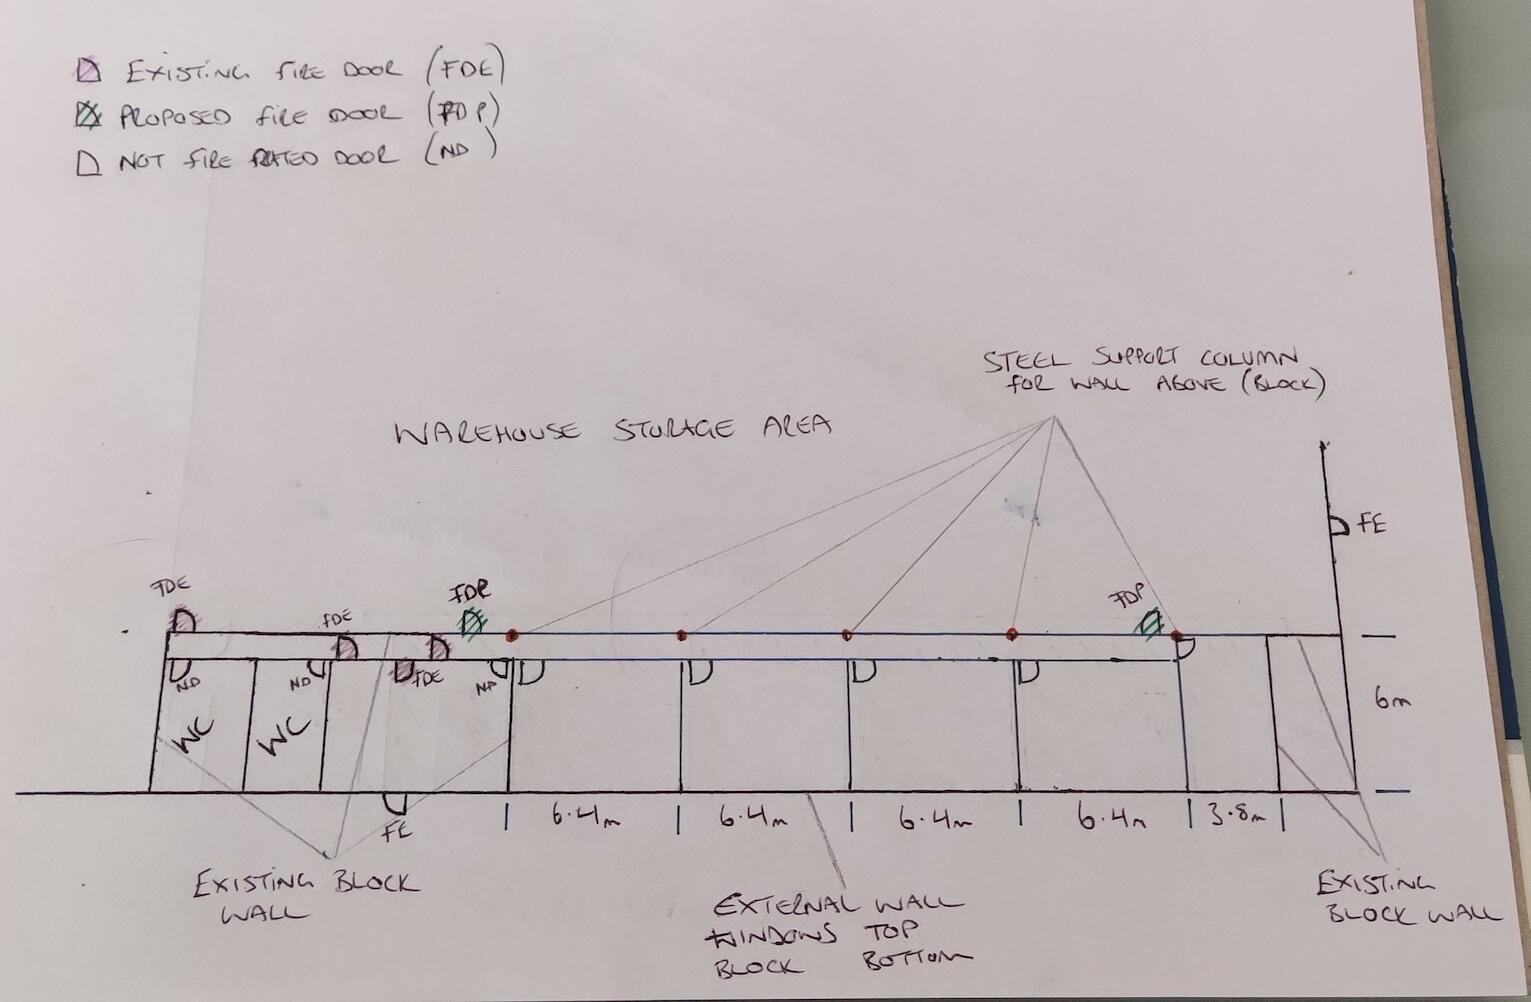 EXISTING FIRE DOOR (FDE)
PROPOSED FIRE DOOR (FDP)
NOT FIRE RATED DOOR (ND)
STEEL SUPPORT COLUMN
FOR WALL ABOVE (BLOCK)
WAREHOUSE STORAGE AREA
FE
FDE
FDE
FDP
FDP
FDE
ND
ND
ND
WC
WC
6m
FE
6.4m
6.4m
6.4m
6.4m
3.8m
EXISTING BLOCK
WALL
EXTERNAL WALL
WINDOWS TOP
BLOCK BOTTOM
EXISTING
BLOCK WALL